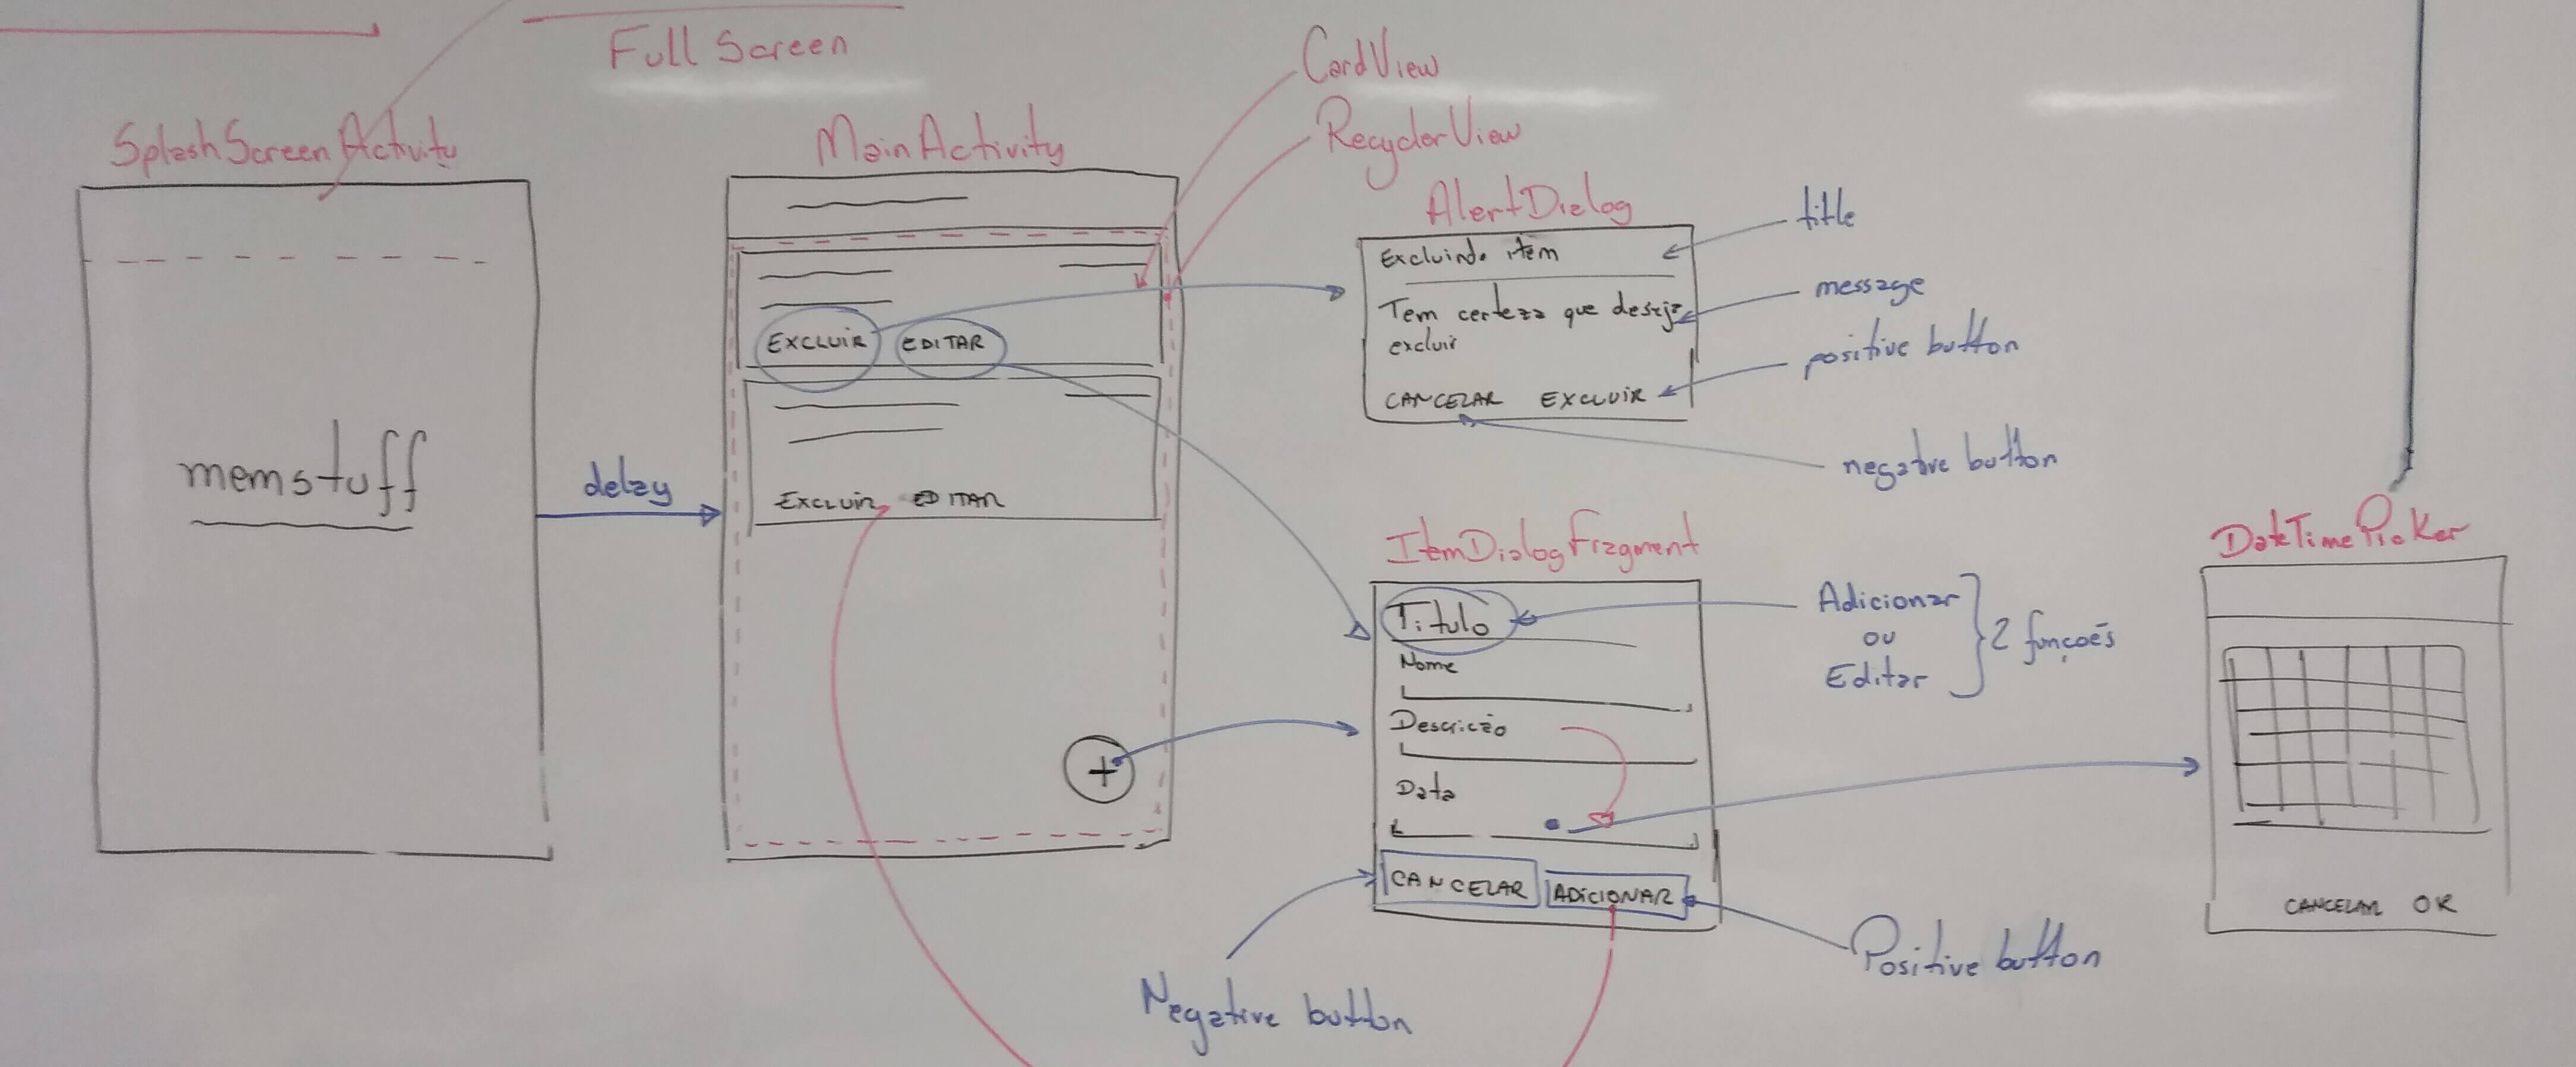 Full Screen
SplashScreenActivity
memstuff
delay
MainActivity
CardView
RecyclerView
EXCLUIR EDITAR
EXCLUIR EDITAR
+
AlertDialog
Excluindo item
Tem certeza que deseja
excluir
CANCELAR EXCLUIR
title
message
positive button
negative button
ItemDialogFragment
Título
Nome
Descrição
Data
CANCELAR ADICIONAR
Adicionar
ou
Editar
2 funcoẽs
Negative button
Positive button
DateTimePicker
CANCELAR OK